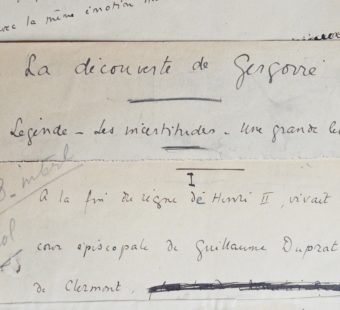 avec la même émotion
La découverte de Gergovie
Légende - Les incertitudes - Une grande
I
A la fin du règne de Henri II, vivait
cour épiscopale de Guillaume Duprat
de Clermont,